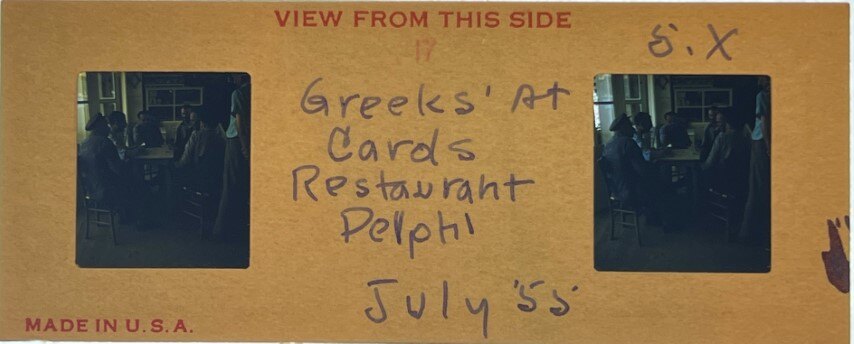 VIEW FROM THIS SIDE
17
5.X
Greeks' At
Cards
Restaurant
Delphi
July '55
MADE IN U.S.A.